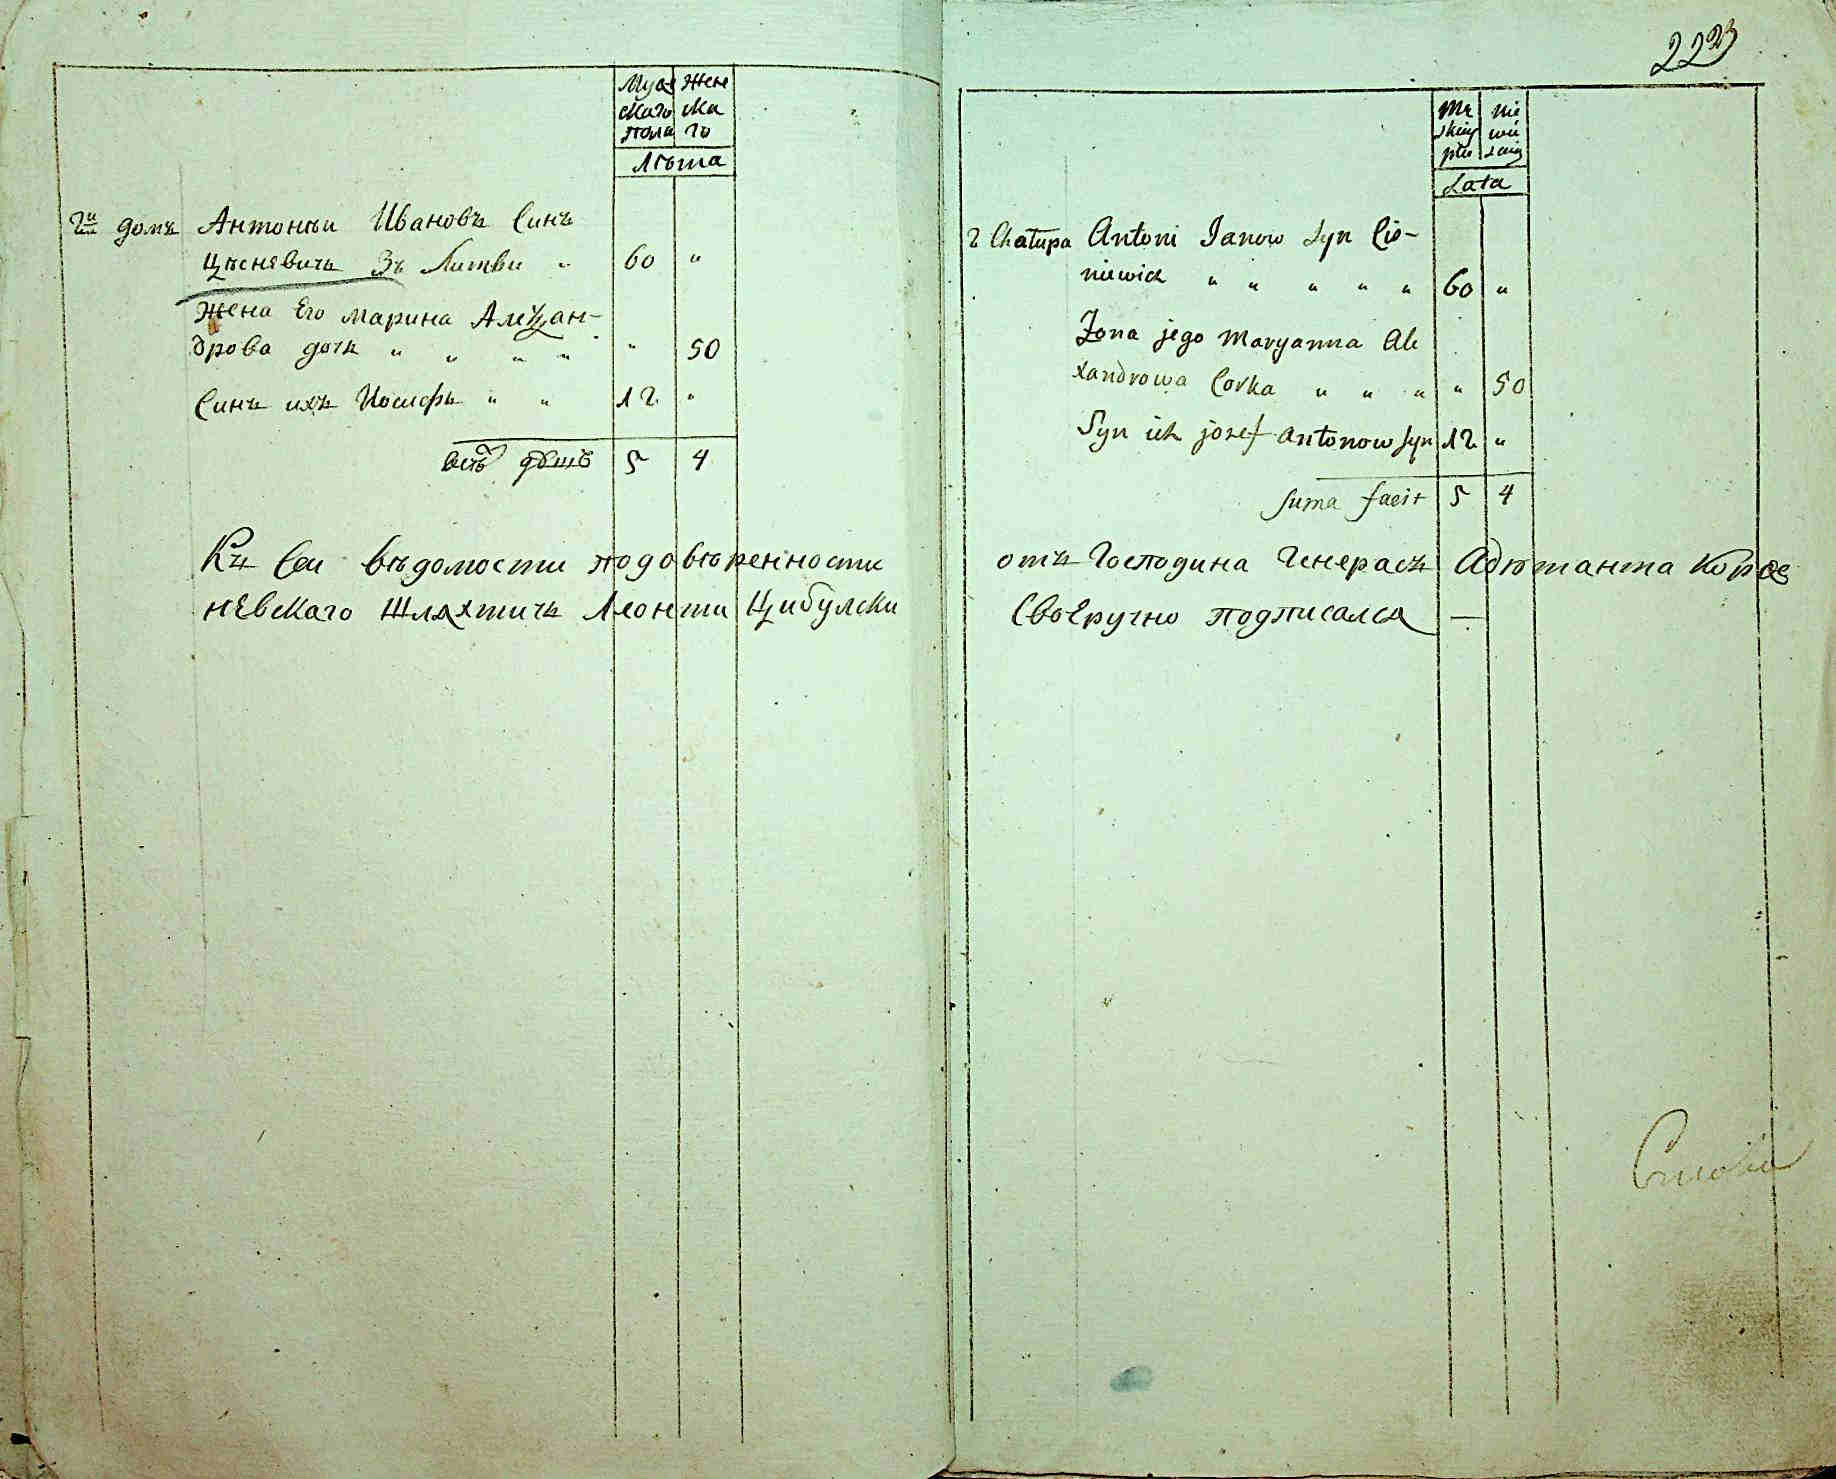 Муж Жен
скаго ска
пола го
Лѣта
2й домъ Антоній Ивановъ Синъ
Цѣсневичъ Зъ Литви " 60 "
Жена Его Марина Алеѯан-
дрова дочь " " " " " 50
Синъ ихъ Иосифъ " " 12 "
всѣхъ душъ 5 4
Къ сей вѣдомости по довѣренности
невскаго Шляхтичъ Леонти Цибулски
222
Mę nie
skiey wie
płci
Lata
2 Chałupa Antoni Janow Syn Cie-
niewicz " " " " " 60 "
Żona jego Maryanna Ale
xandrowa Corka " " " " 50
Syn ich Jozef Antonow Syn 12 "
Suma facit 5 4
отъ Господина Генерасъ Адютанта
Своеручно подписался —